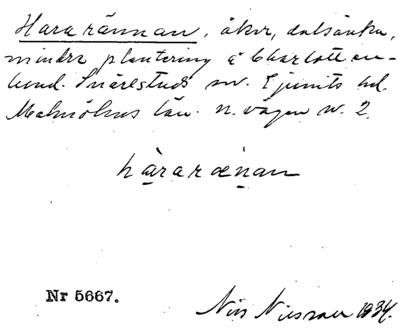 Hararännan, åker, dalsänka,
mindre plantering å Charlotten-
lund. Snårestads sn. Ljunits hd.
Malmöhus län. n. vägen nr. 2.
hạ̄rarænan
Nr 5667.
Nils Nilsson 1934.